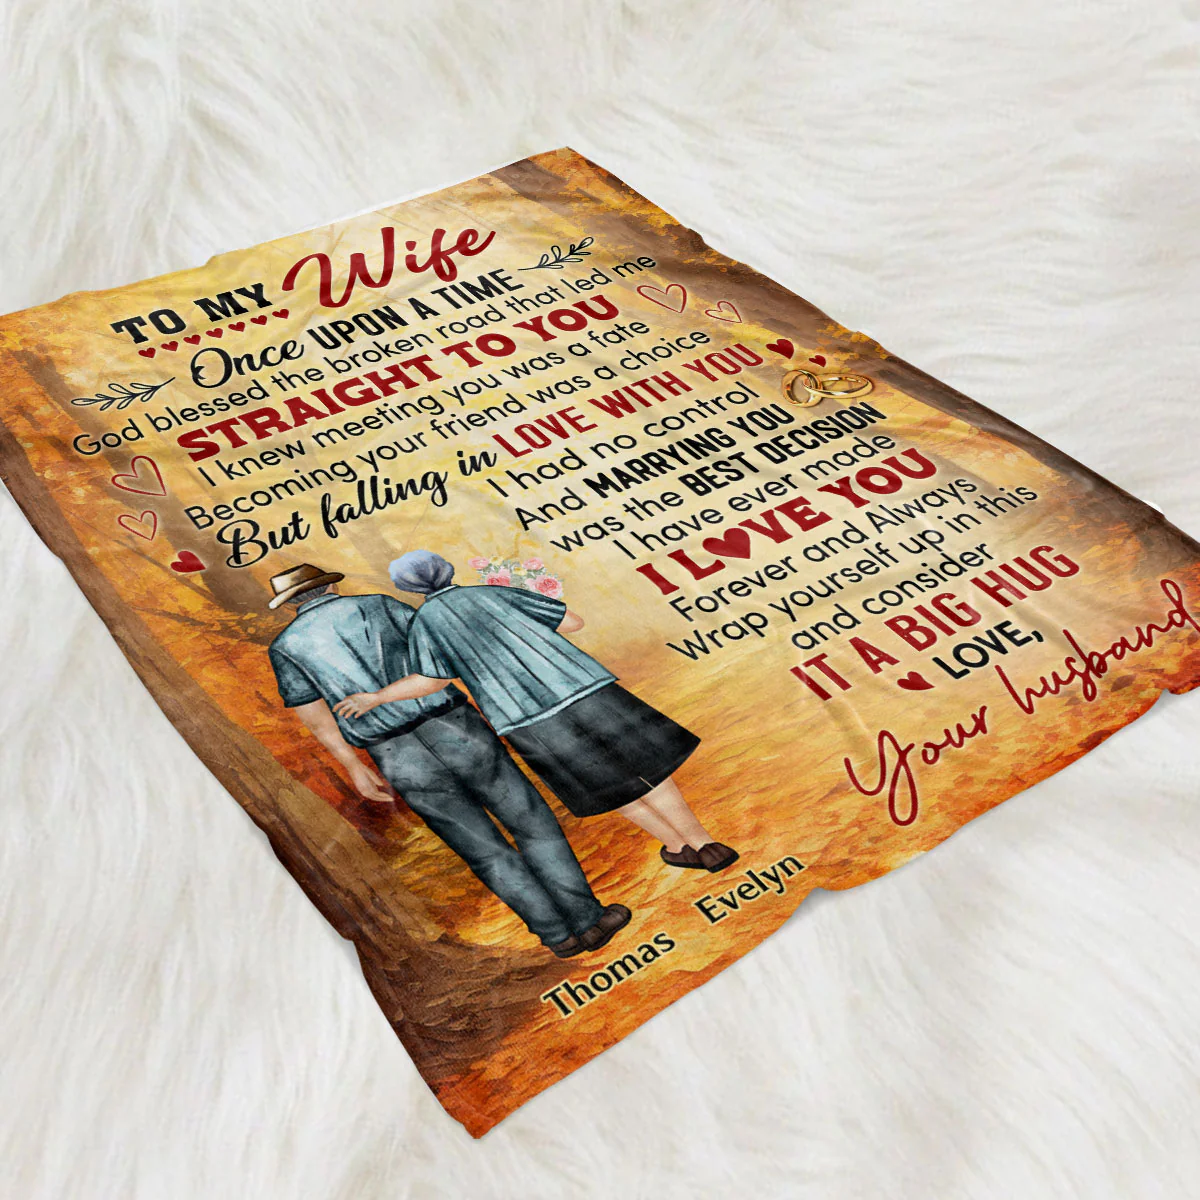 TO MY Wife
Once UPON A TIME
God blessed the broken road that led me
STRAIGHT TO YOU
I knew meeting you was a fate
Becoming your friend was a choice
But falling in LOVE WITH YOU
I had no control
And MARRYING YOU
was the BEST DECISION
I have ever made
I LOVE YOU
Forever and Always
Wrap yourself up in this
and consider
IT A BIG HUG
LOVE,
Your husband
Thomas
Evelyn